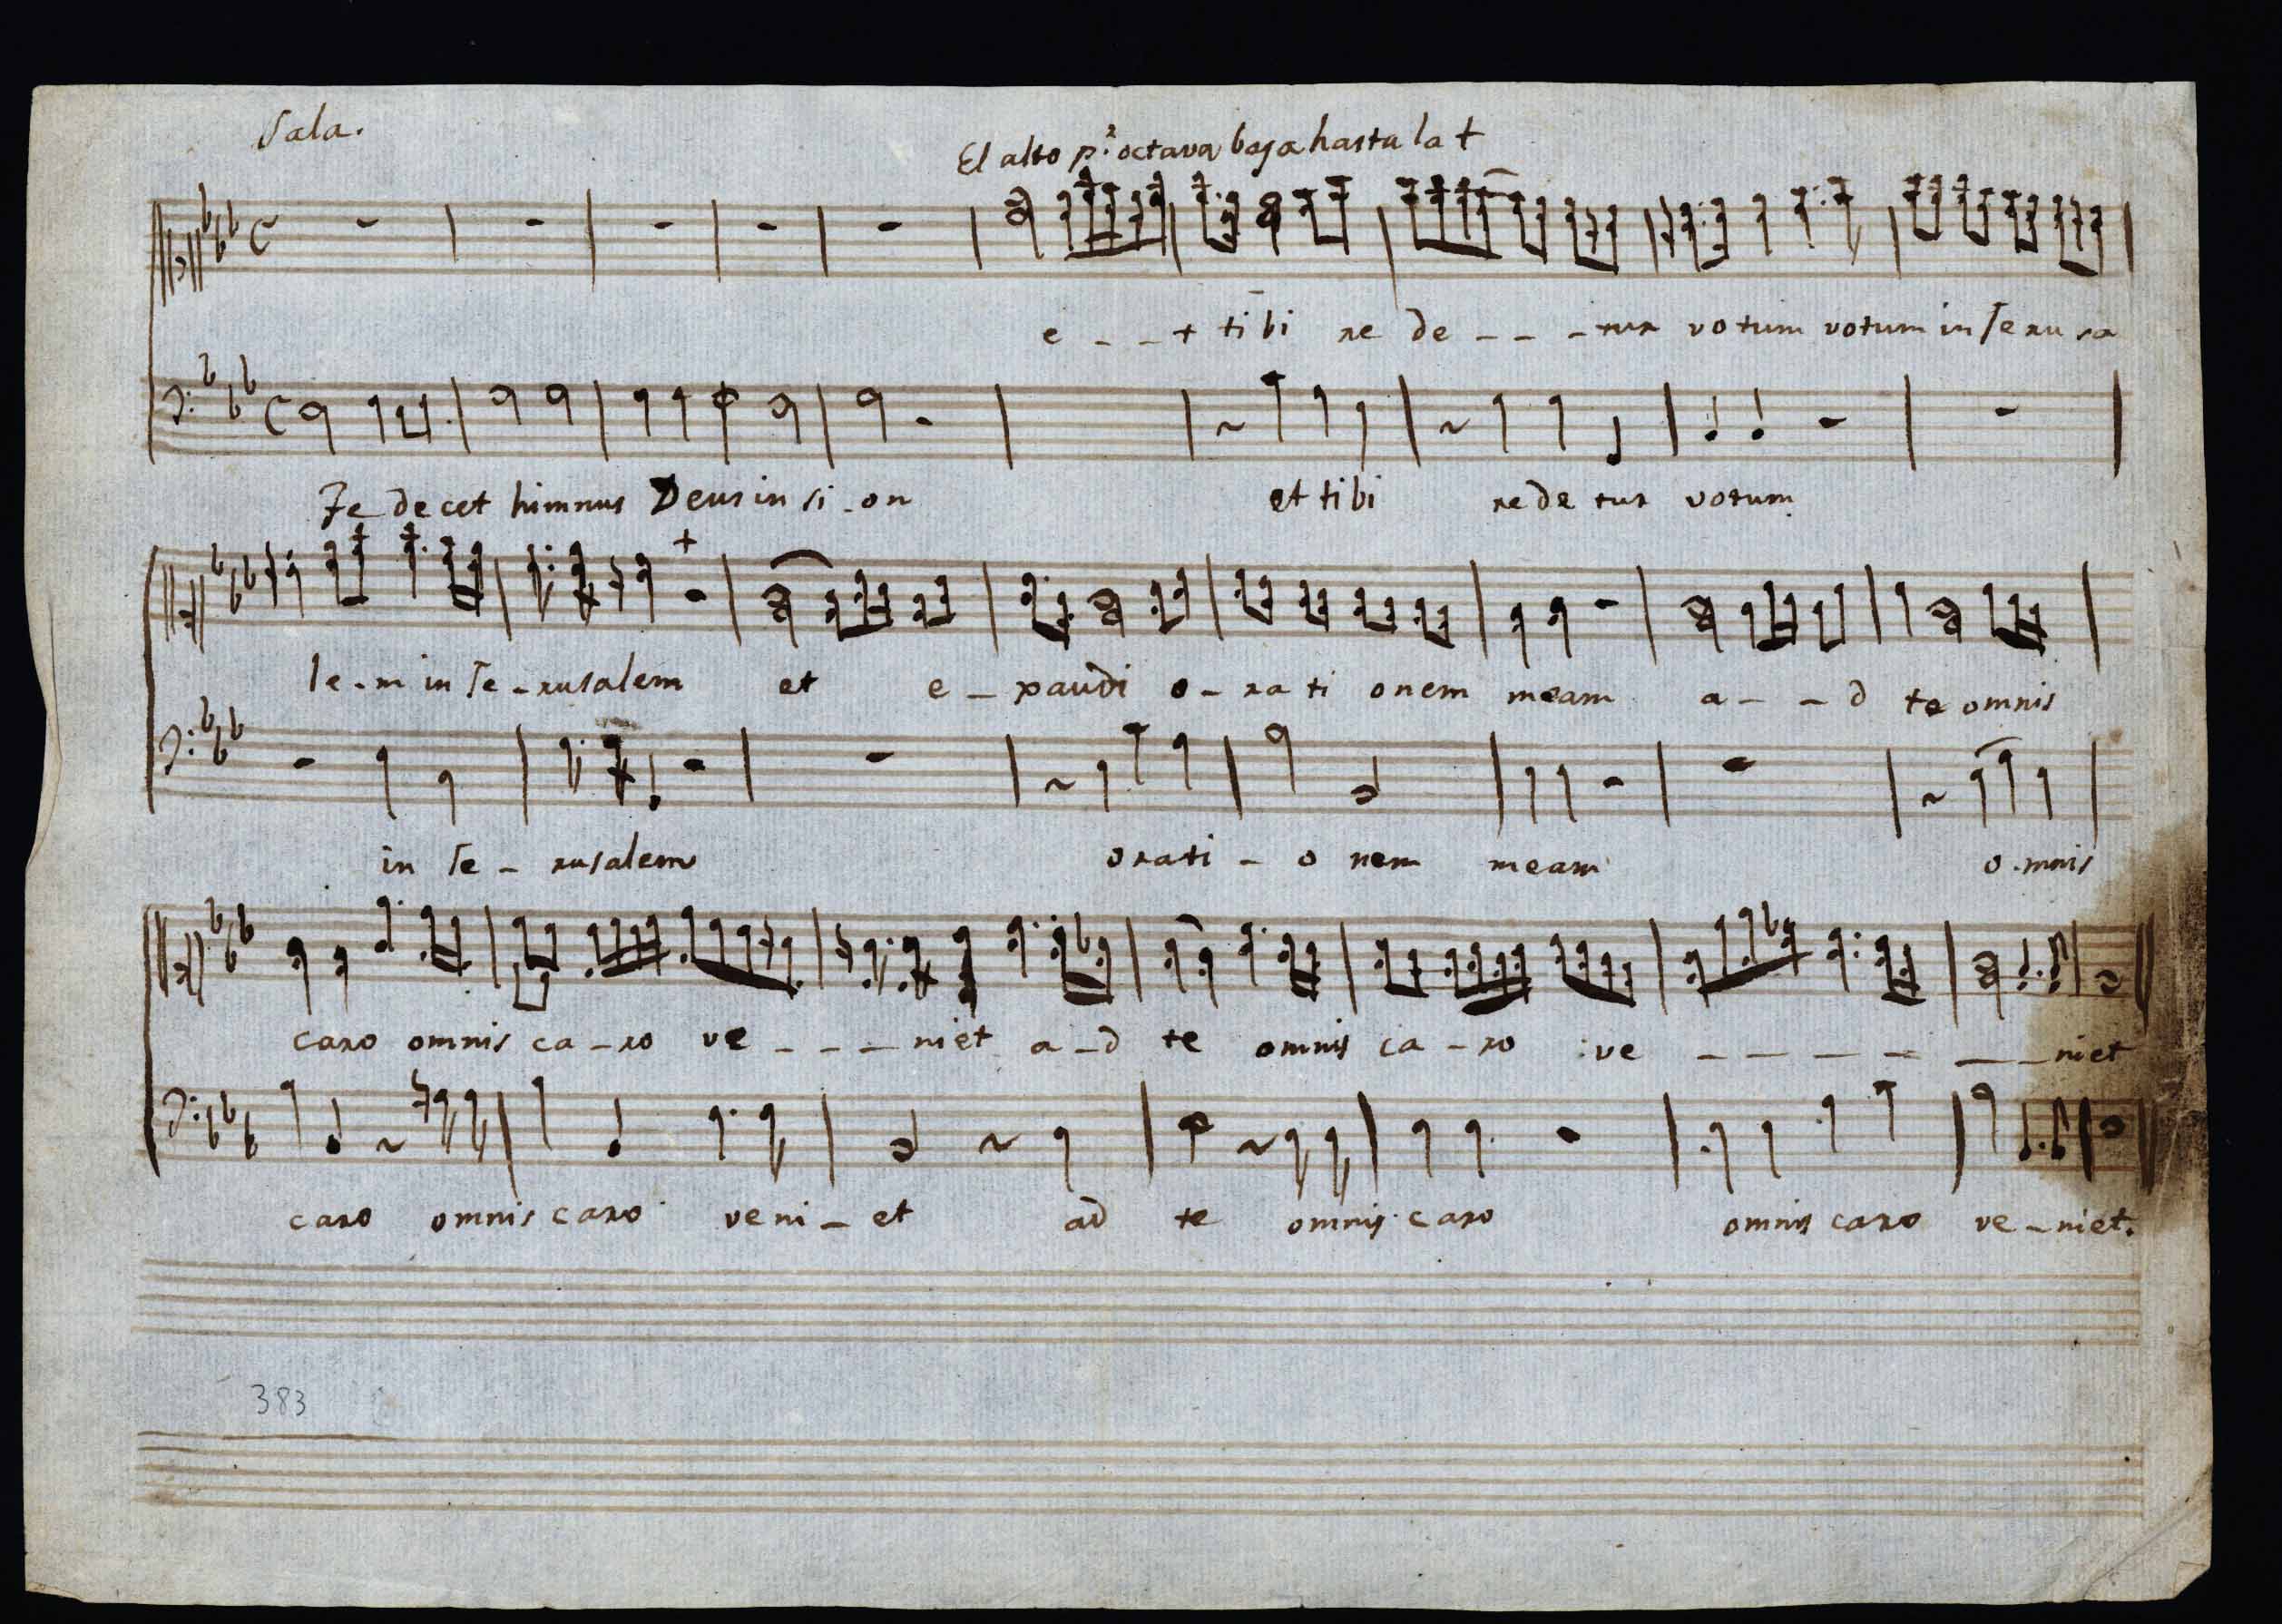 Sala.
El alto pr. octava baja hasta la +
e _ _ + tibi re de _ _ _ tur votum votum in Jerusa
Te decet himnus Deus in si - on et tibi redetur votum
le - m in Je - rusalem et e - xaudi o - ra ti onem meam a - - d te omnis
in Je - rusalem orati - o nem meam o mnis
caro omnis ca - ro ve - - - niet a - d te omnis ca - ro ve _ _ _ _ _ _ niet
caro omnis caro veni - et ad te omnis caro omnis caro ve - niet.
383